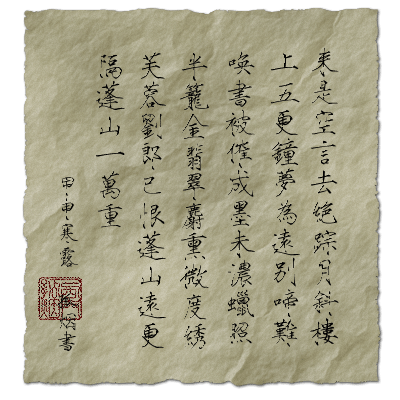 來是空言去絕踪月斜樓
上五更鐘夢為遠別啼難
喚書被催成墨未濃蠟照
半籠金翡翠麝熏微度綉
芙蓉劉郎已恨蓬山遠更
隔蓬山一萬重
甲申寒露
書